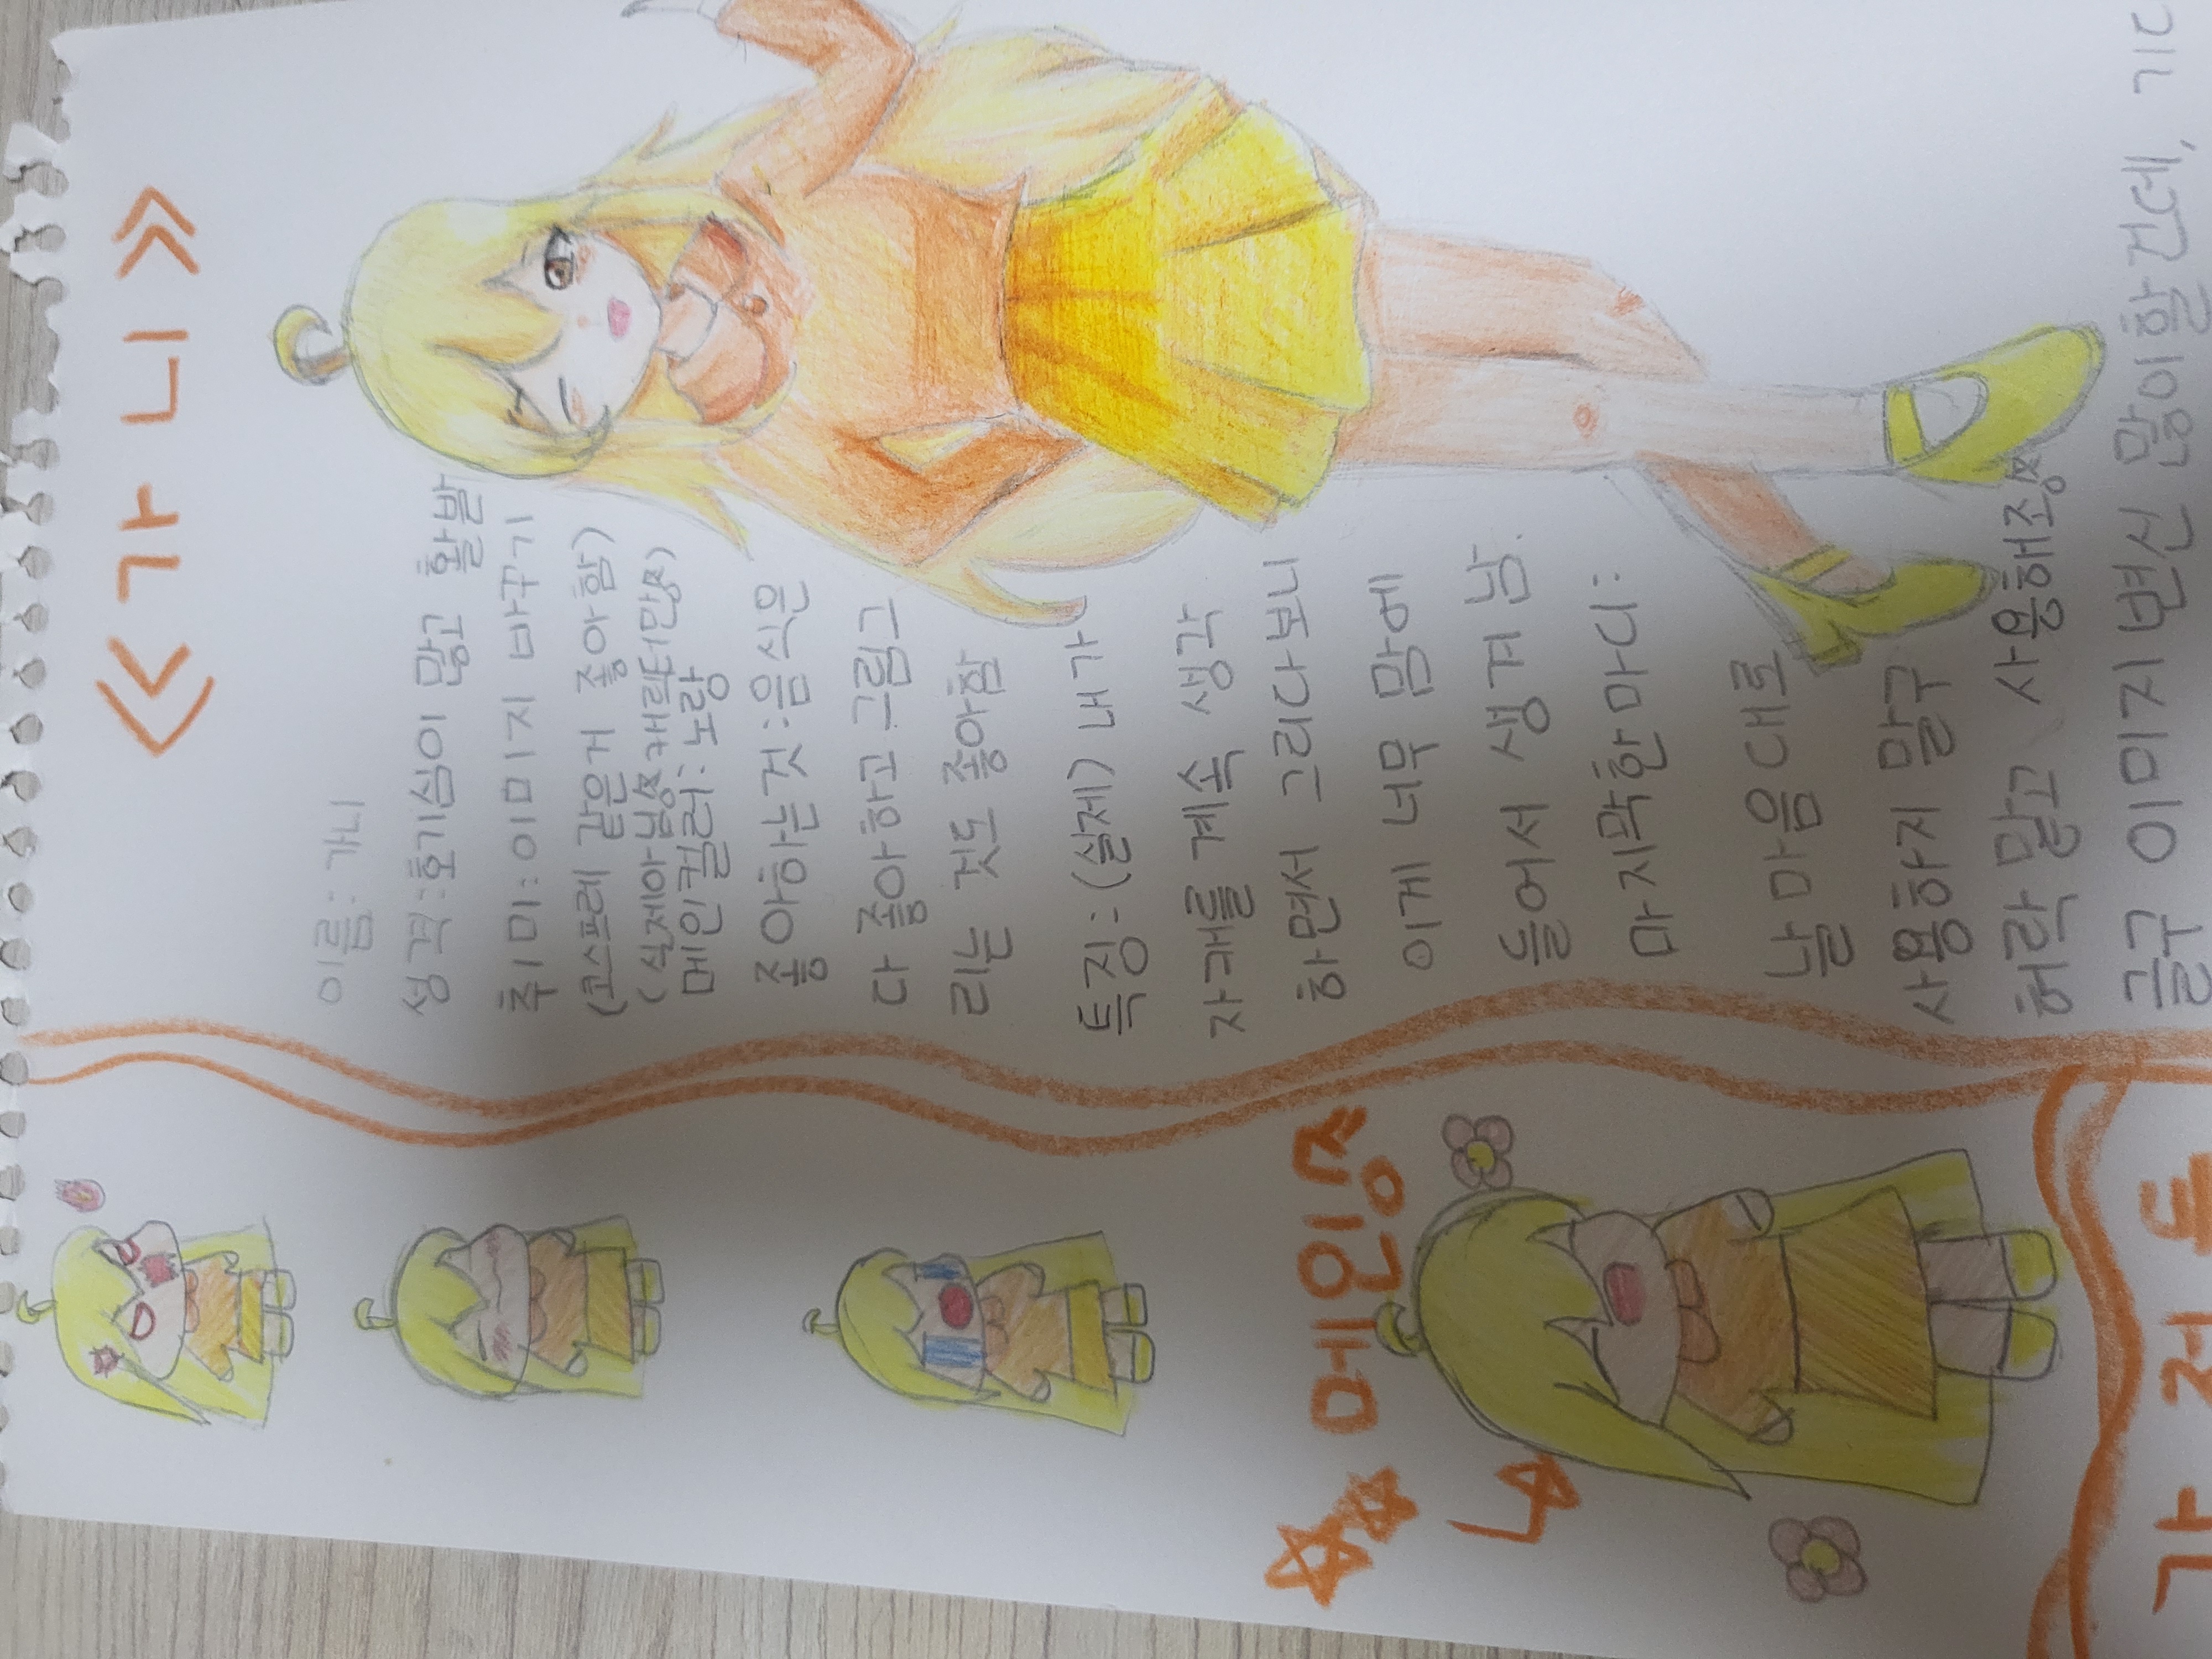 ≪가 니≫
이름: 가니
성격:호기심이 많고 활발
취미:이미지 바꾸기
(코스프레 같은거 좋아함)
(실제아님 캐릭터만)
메인컬러:노랑
좋아하는것:음식은
다 좋아하고 그림그
리는 것도 좋아함
특징:(실제) 내가
자캐를 계속 생각
하면서 그리다보니
이게 너무 맘에
들어서 생겨 남.
마지막한마디:
날 마음대로
사용하지 말구
허락 맡고 사용해죠
글구 이미지변신 많이할건데,
메인